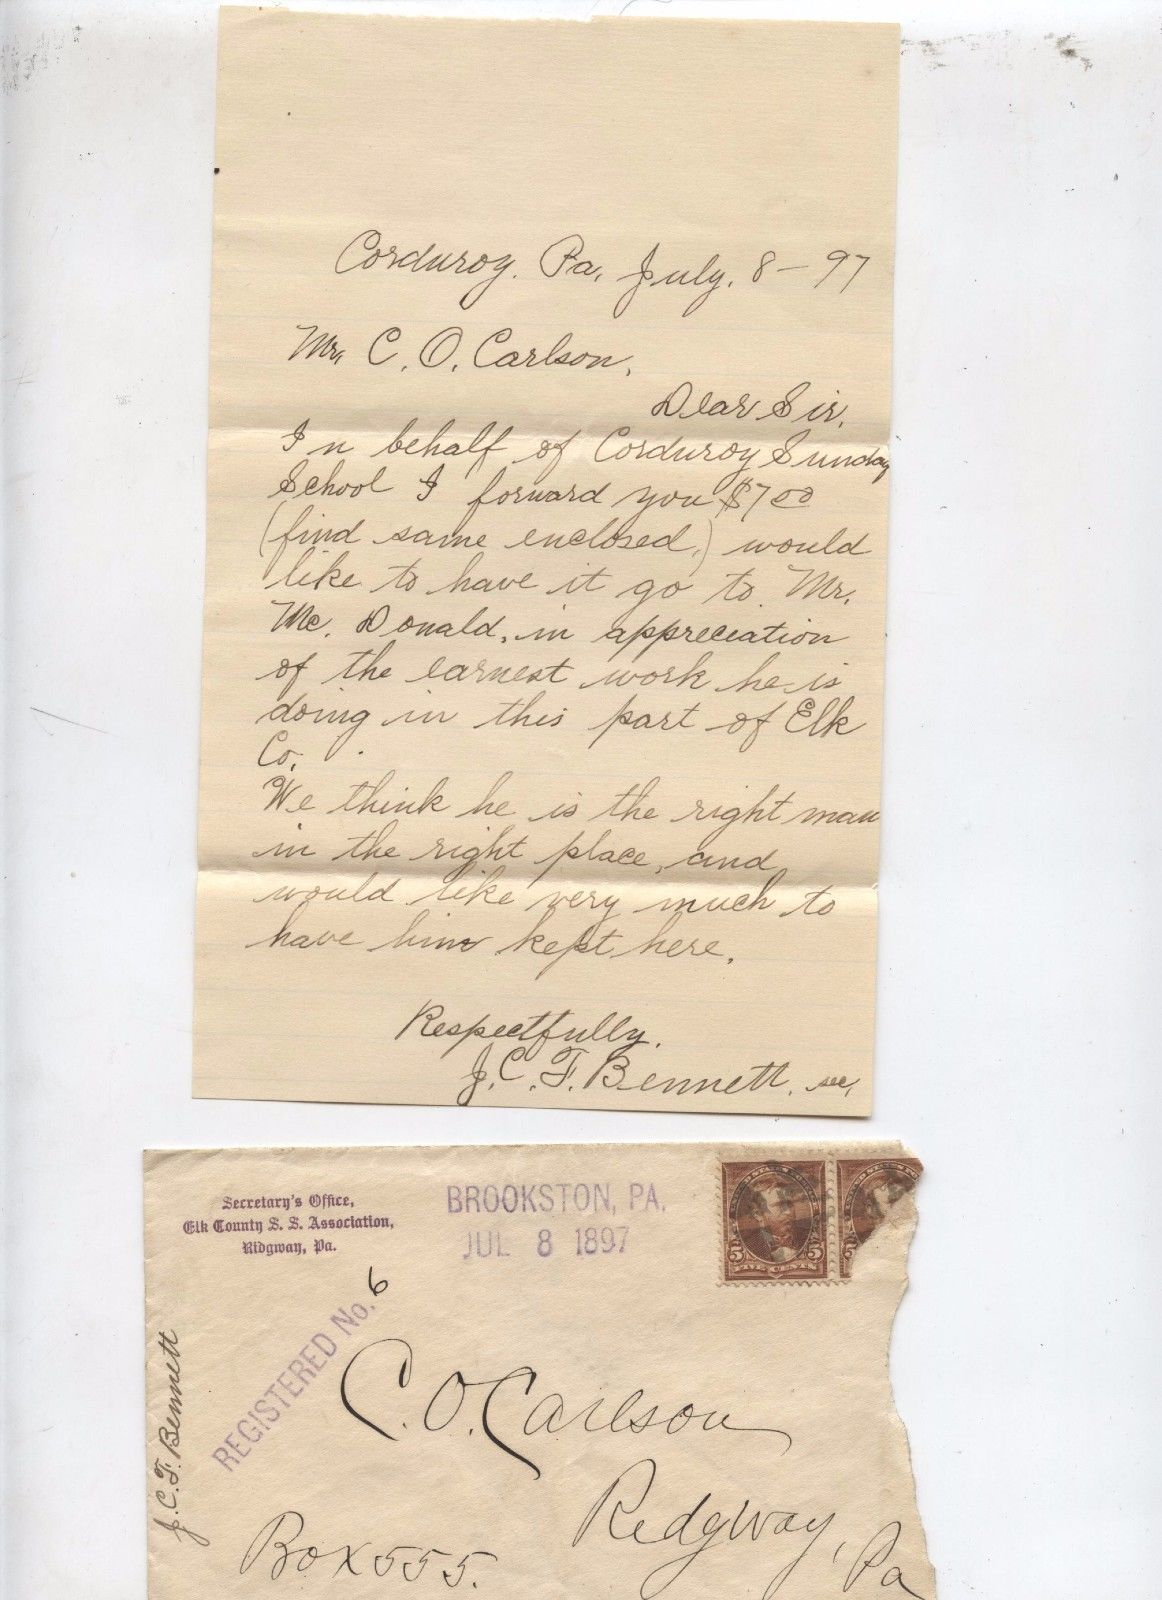 Corduroy. Pa, July. 8 - 97
Mr, C. O. Carlson,
Dear Sir,
In behalf of Corduroy Sunday
School I forward you $7 00
(find same enclosed,) would
like to have it go to Mr.
Mc. Donald, in appreciation
of the earnest work he is
doing in this part of Elk
Co.
We think he is the right man
in the right place, and
would like very much to
have him kept here,
Respectfully.
J. C. F. Bennett, sec,
Secretary's Office,
Elk County S. S. Association,
Ridgway, Pa.
BROOKSTON, PA.
JUL 8 1897
5 5
FIVE CENTS
REGISTERED No. 6
J. C. F. Bennett
C. O. Carlson
Ridgway, Pa
Box 555.